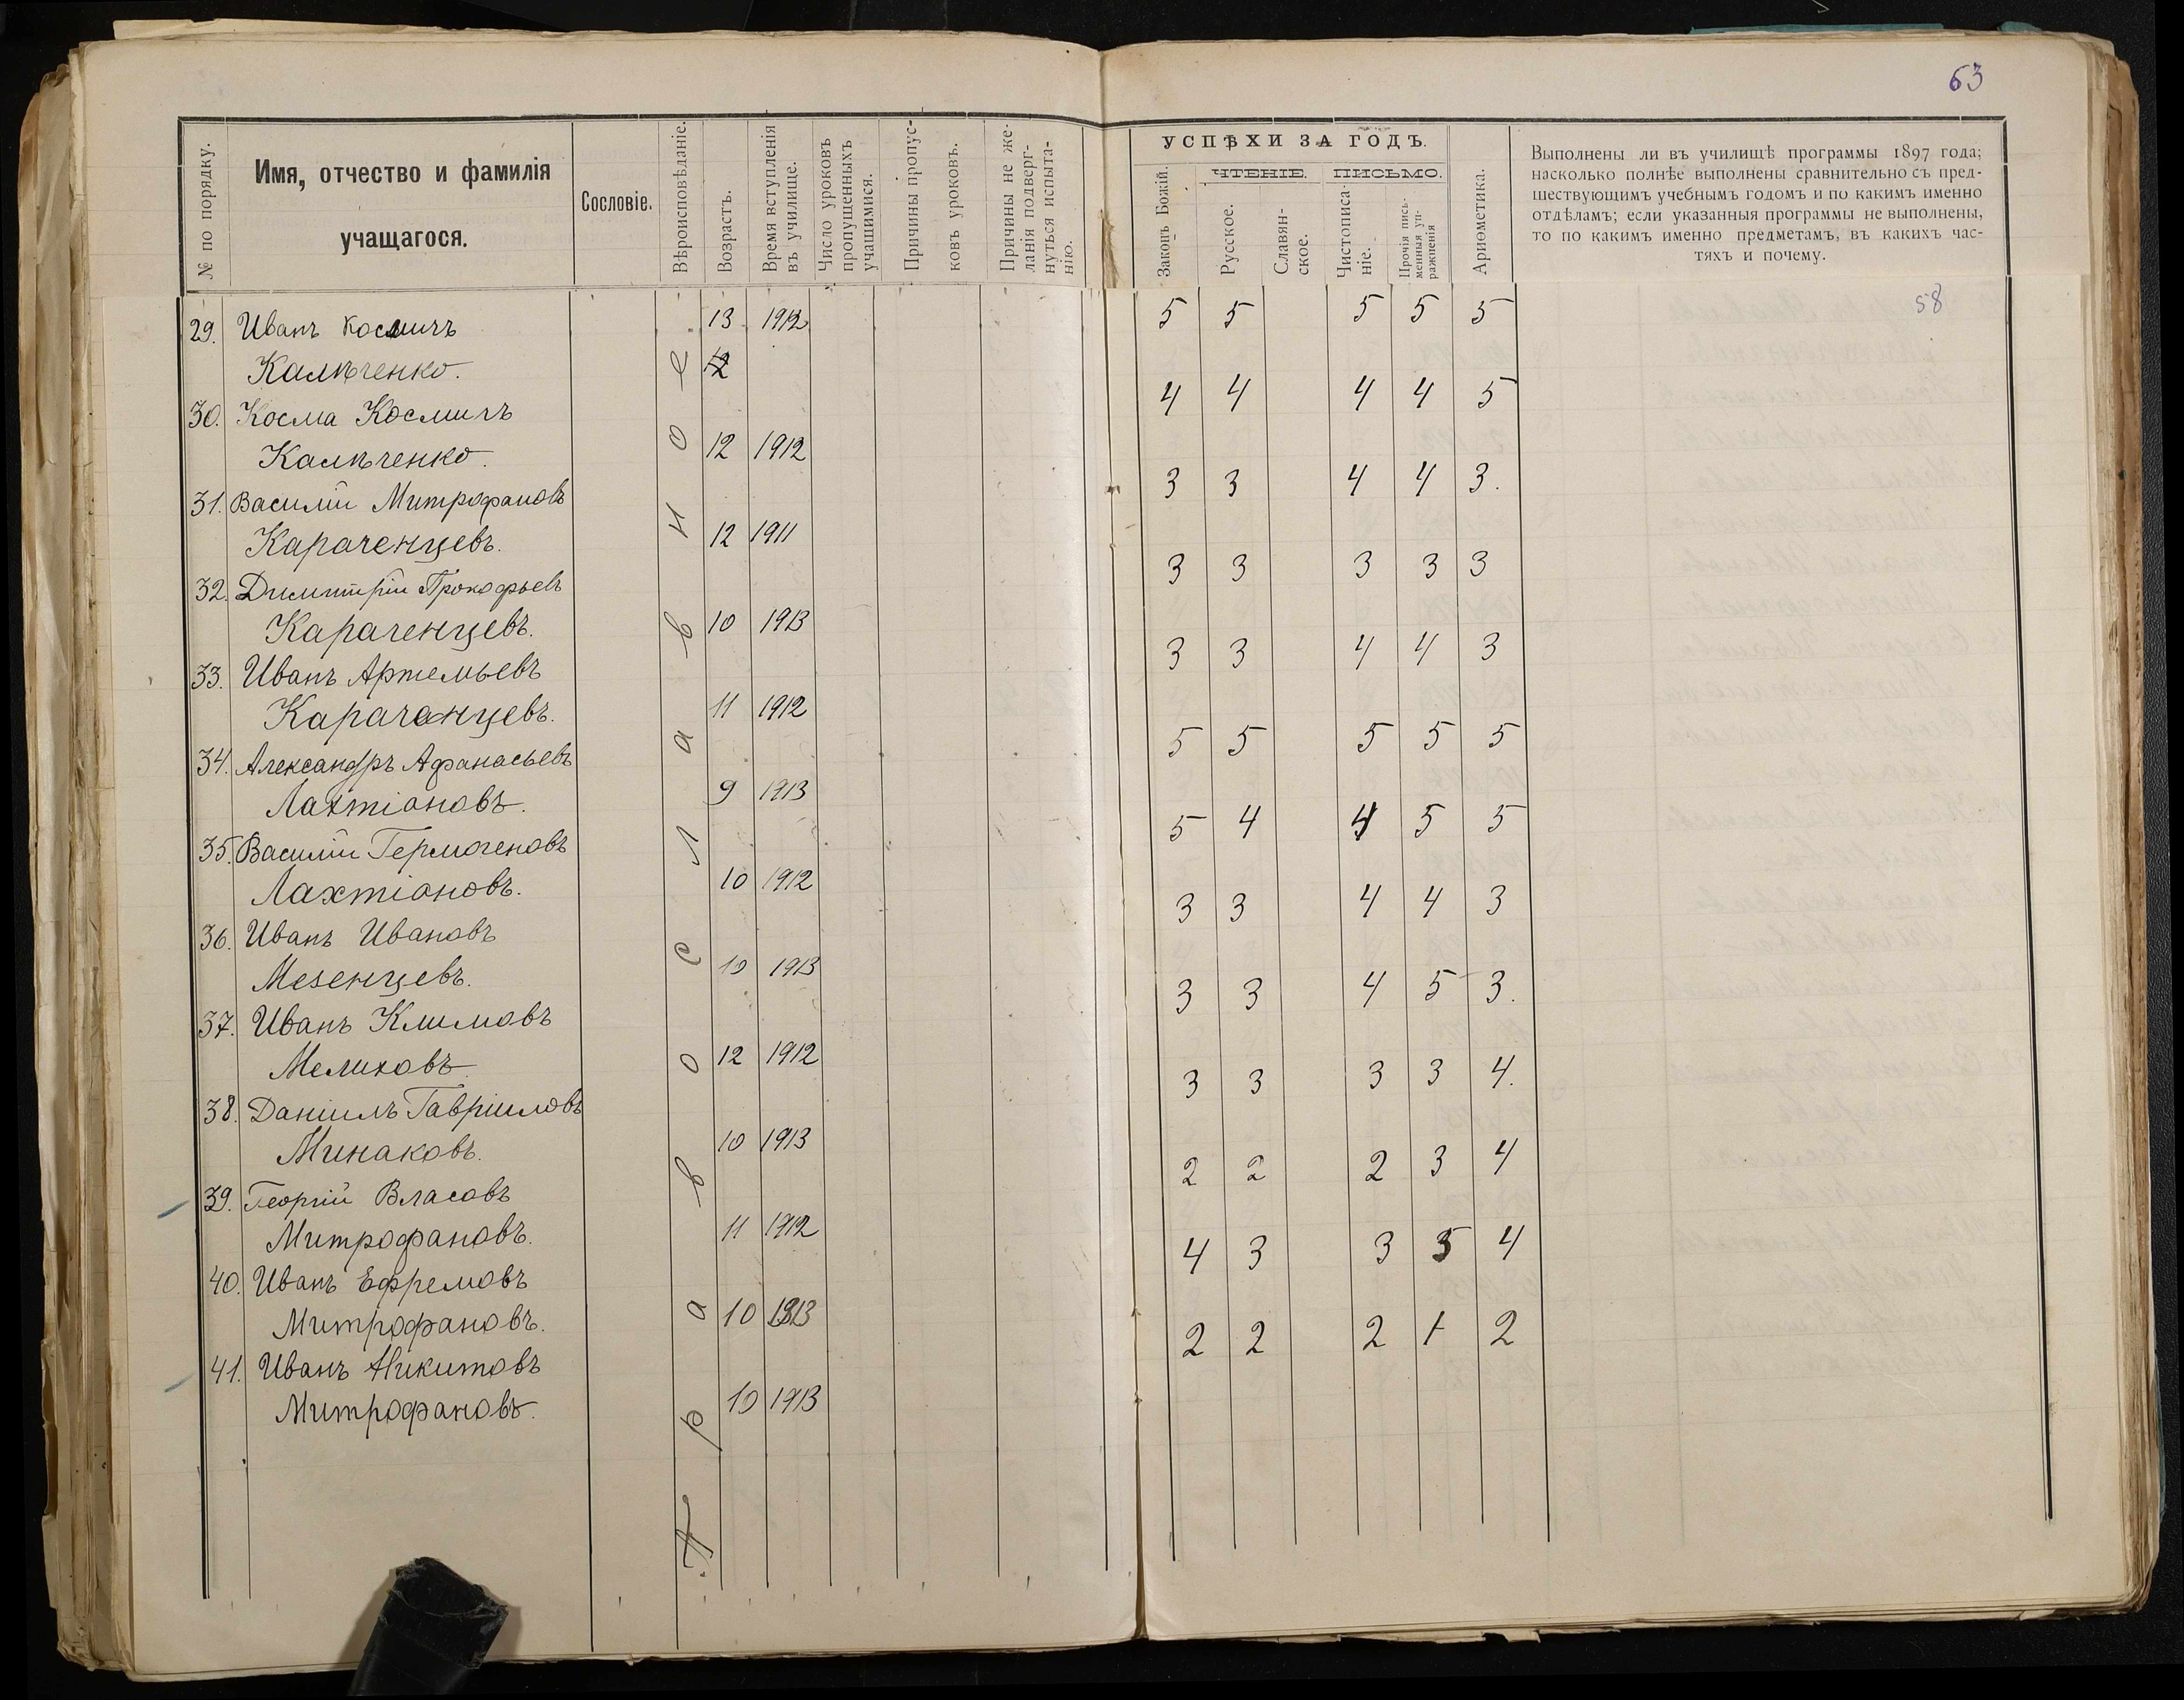 63
№ по порядку.
Имя, отчество и фамилія
учащагося.
Сословіе.
Вѣроисповѣданіе.
Возрастъ.
Время вступленія
въ училище.
Число уроковъ
пропущенныхъ
учащимися.
Причины пропус-
ковъ уроковъ.
Причины не же-
ланія подверг-
нуться испыта-
нію.
УСПѢХИ ЗА ГОДЪ.
Законъ Божій.
ЧТЕНІЕ.
Русское.
Славян-
ское.
ПИСЬМО.
Чистописа-
ніе.
Прочія пись-
менныя уп-
ражненія
Ариѳметика.
Выполнены ли въ училищѣ программы 1897 года;
насколько полнѣе выполнены сравнительно съ пред-
шествующимъ учебнымъ годомъ и по какимъ именно
отдѣламъ; если указанныя программы не выполнены,
то по какимъ именно предметамъ, въ какихъ час-
тяхъ и почему.
58
Православное
29. Иванъ Космичъ 13 1912 5 5 5 5 5
Калѣченко. 12
30. Косма Космичъ 4 4 4 4 5
Калѣченко. 12 1912
31. Василій Митрофановъ 3 3 4 4 3.
Караченцевъ. 12 1911
32. Димитрій Прокофьевъ 3 3 3 3 3
Караченцевъ. 10 1913
33. Иванъ Артемьевъ 3 3 4 4 3
Караченцевъ. 11 1912
34. Александръ Афанасьевъ 5 5 5 5 5
Лахтіоновъ. 9 1913
35. Василій Гермогеновъ 5 4 4 5 5
Лахтіоновъ. 10 1912
36. Иванъ Ивановъ 3 3 4 4 3
Мезенцевъ. 10 1913
37. Иванъ Климовъ 3 3 4 5 3.
Мелиховъ. 12 1912
38. Даніилъ Гавріиловъ 3 3 3 3 4.
Минаковъ. 10 1913
39. Георгій Власовъ 2 2 2 3 4
Митрофановъ. 11 1912
40. Иванъ Ефремовъ 4 3 3 3 4
Митрофановъ. 10 1913
41. Иванъ Никитовъ 2 2 2 1 2
Митрофановъ. 10 1913